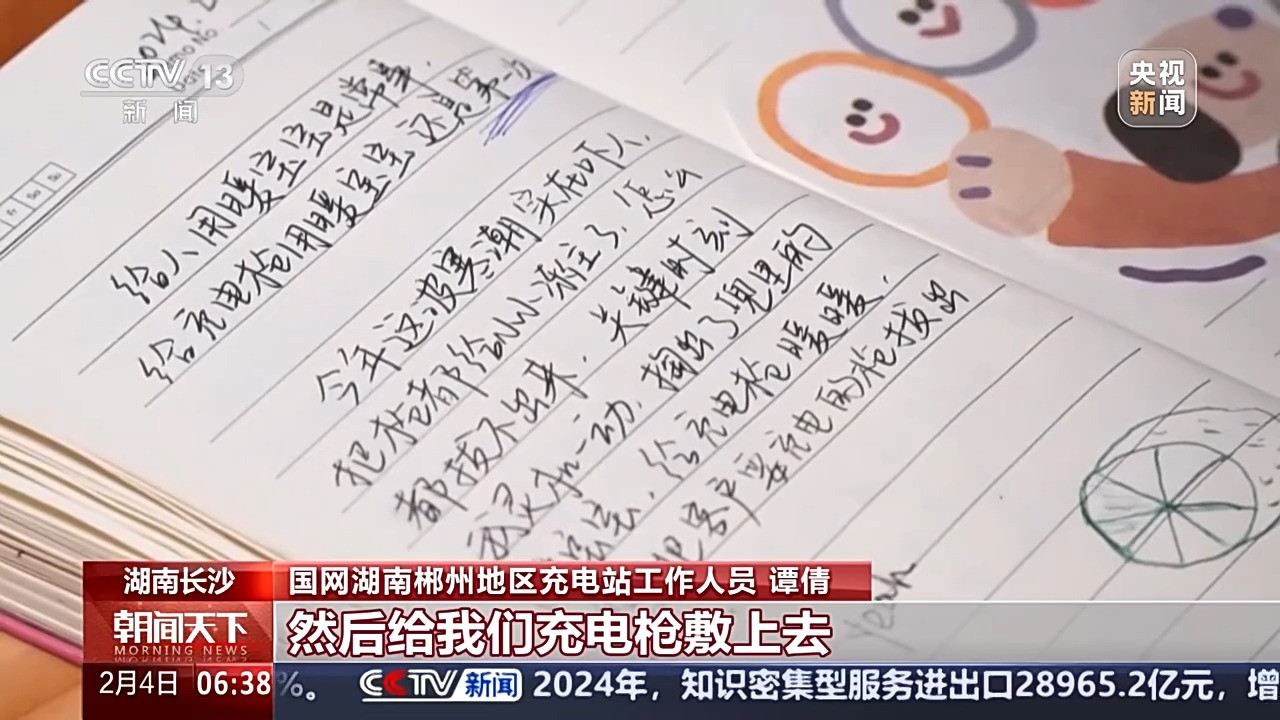 CCTV 13
新闻
央视
新闻
给人用暖宝宝是常事.
给充电枪用暖宝宝还是第一次
今年这波寒潮实在吓人.
把枪都给冰冻住了.怎么
都拔不出来.关键时刻
我灵机一动.掏出了兜里的
宝宝.给充电枪暖暖.
把客户要充电的枪拔出
Yeah
湖南长沙
国网湖南郴州地区充电站工作人员 谭倩
朝闻天下
MORNING NEWS
然后给我们充电枪敷上去
2月4日 06:38
%。 CCTV新闻 2024年，知识密集型服务进出口28965.2亿元，增